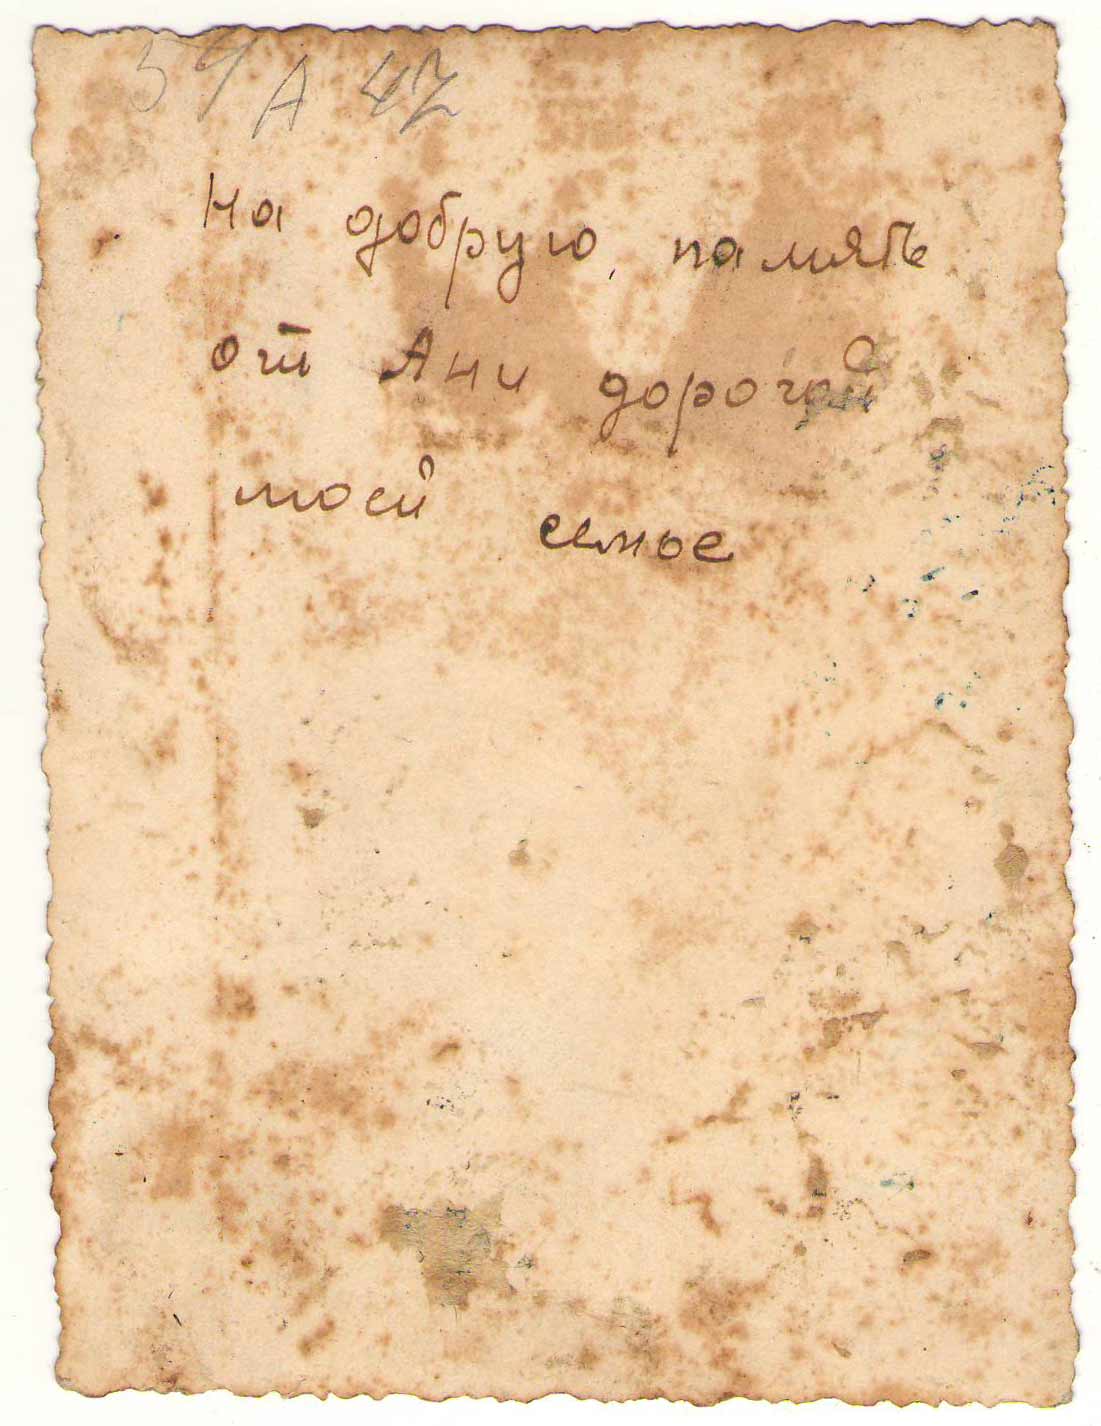 59 A 47
На добрую, память
от Ани дорогой
моей семье